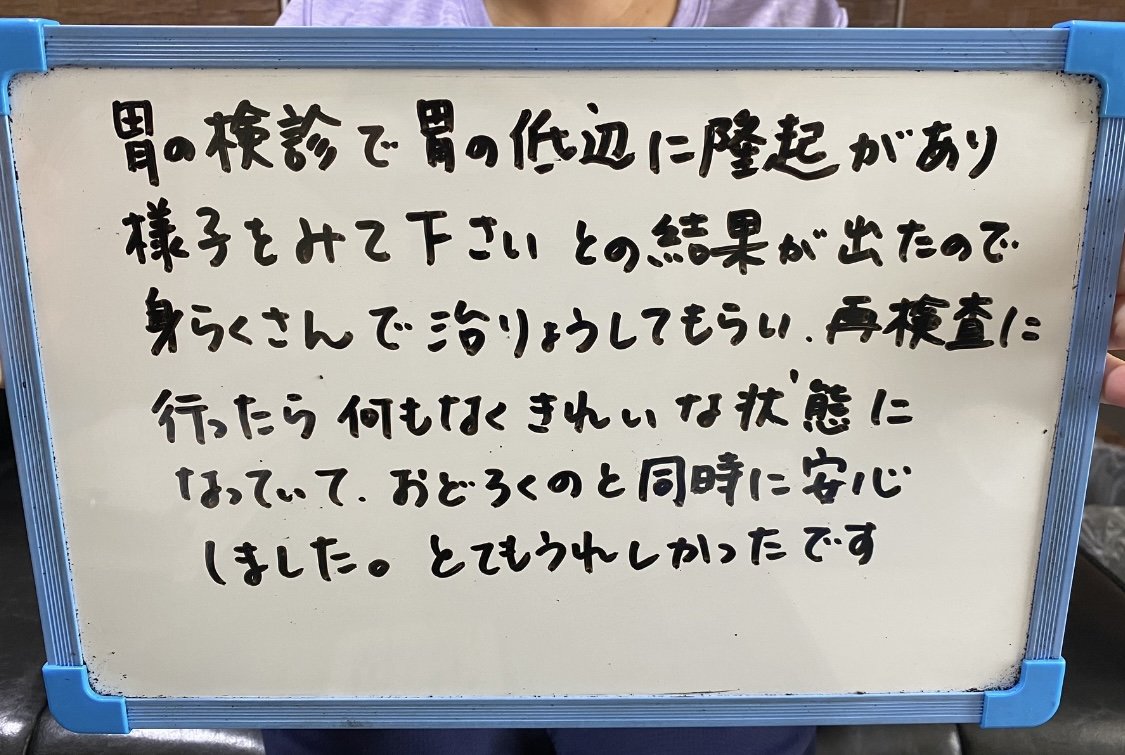 胃の検診で胃の低辺に隆起があり
様子をみて下さい との結果が出たので
身らくさんで治りょうしてもらい、再検査に
行ったら何もなくきれいな状態に
なっていて、おどろくのと同時に安心
しました。とてもうれしかったです